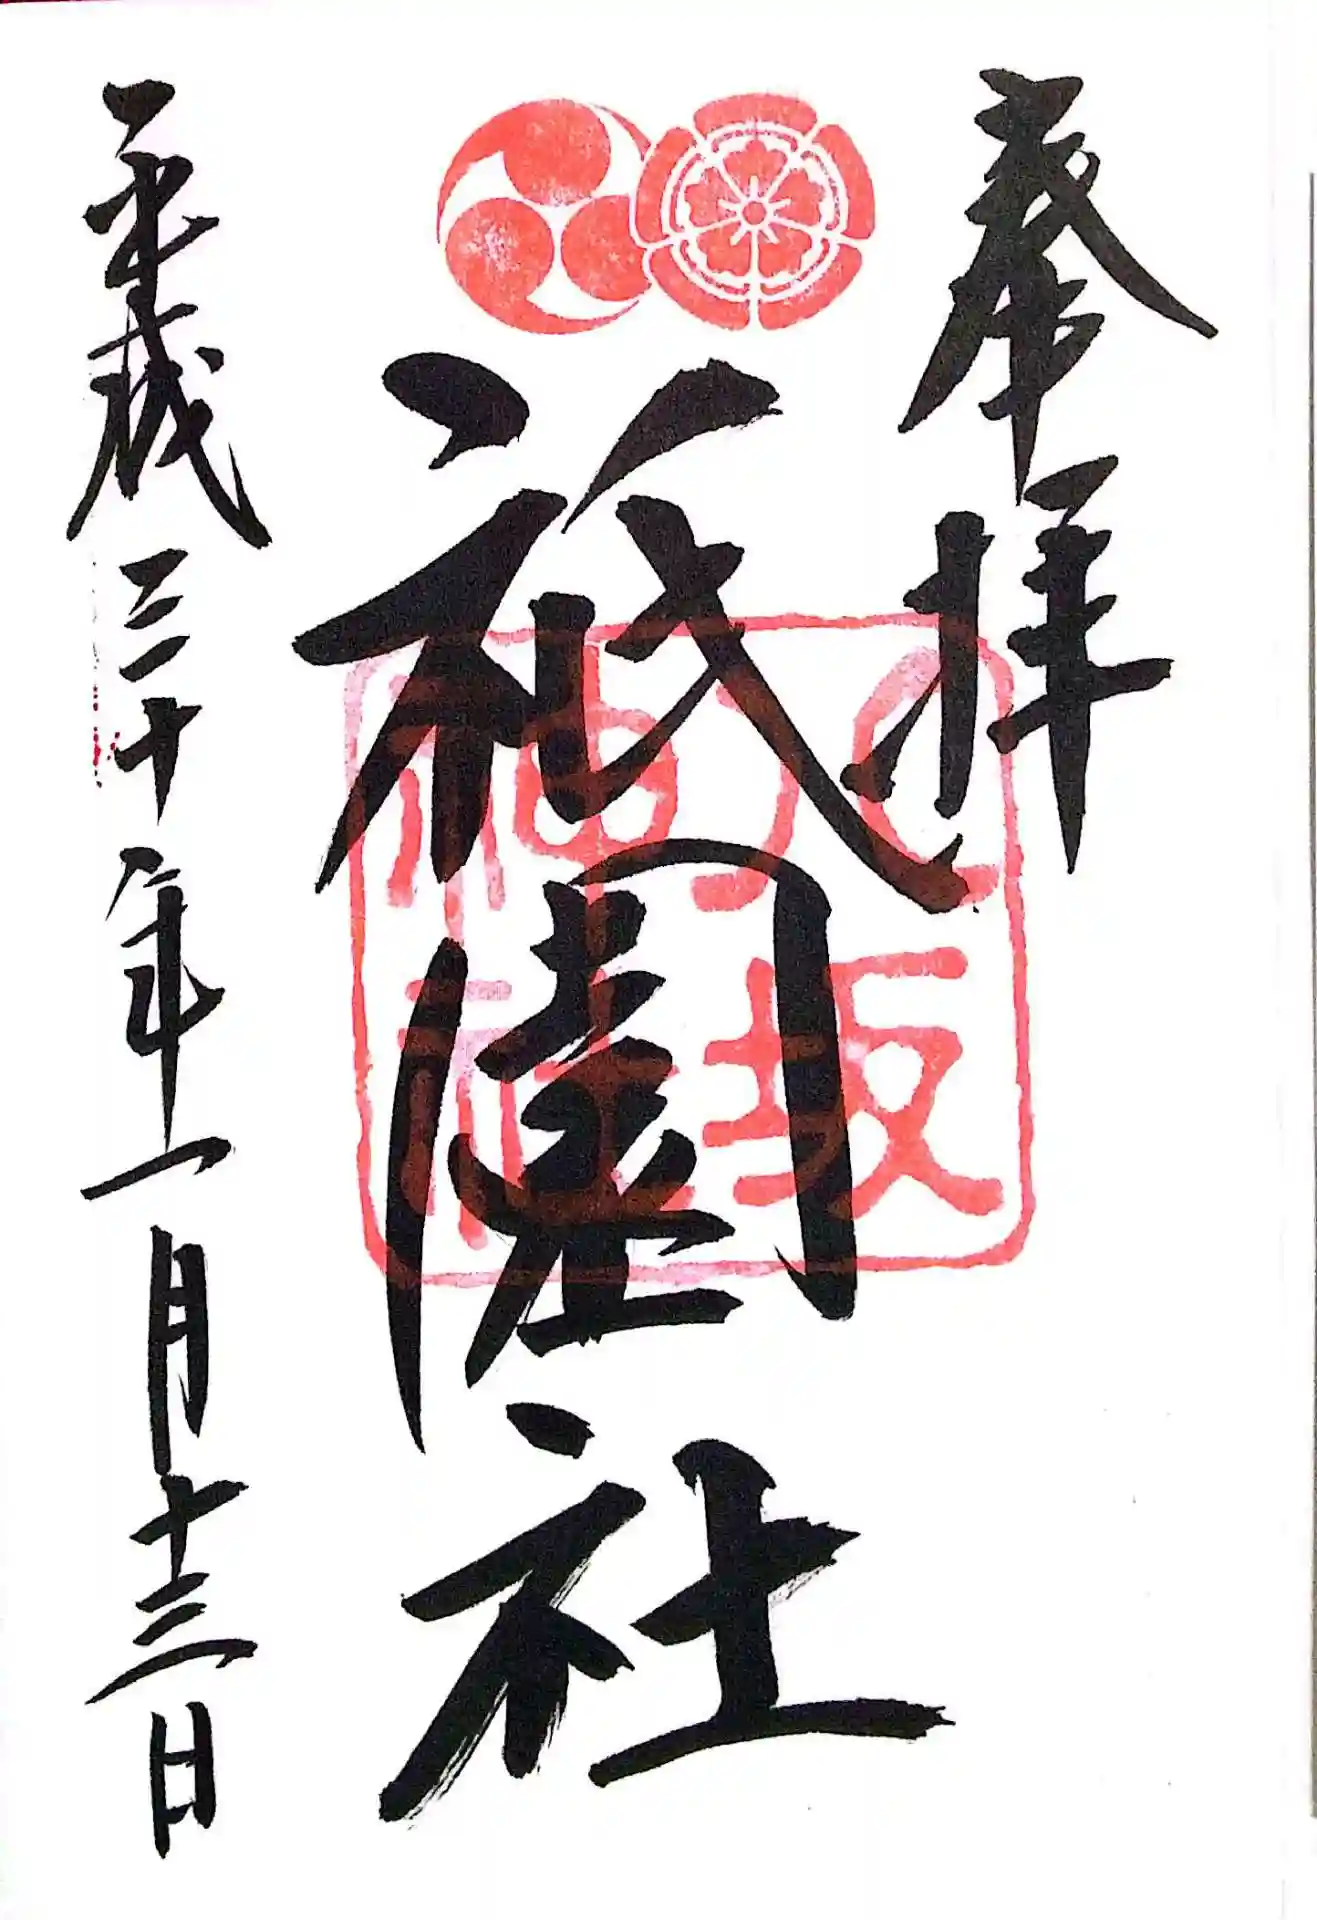 奉拝
祇園社
八坂神社
平成三十年一月十三日